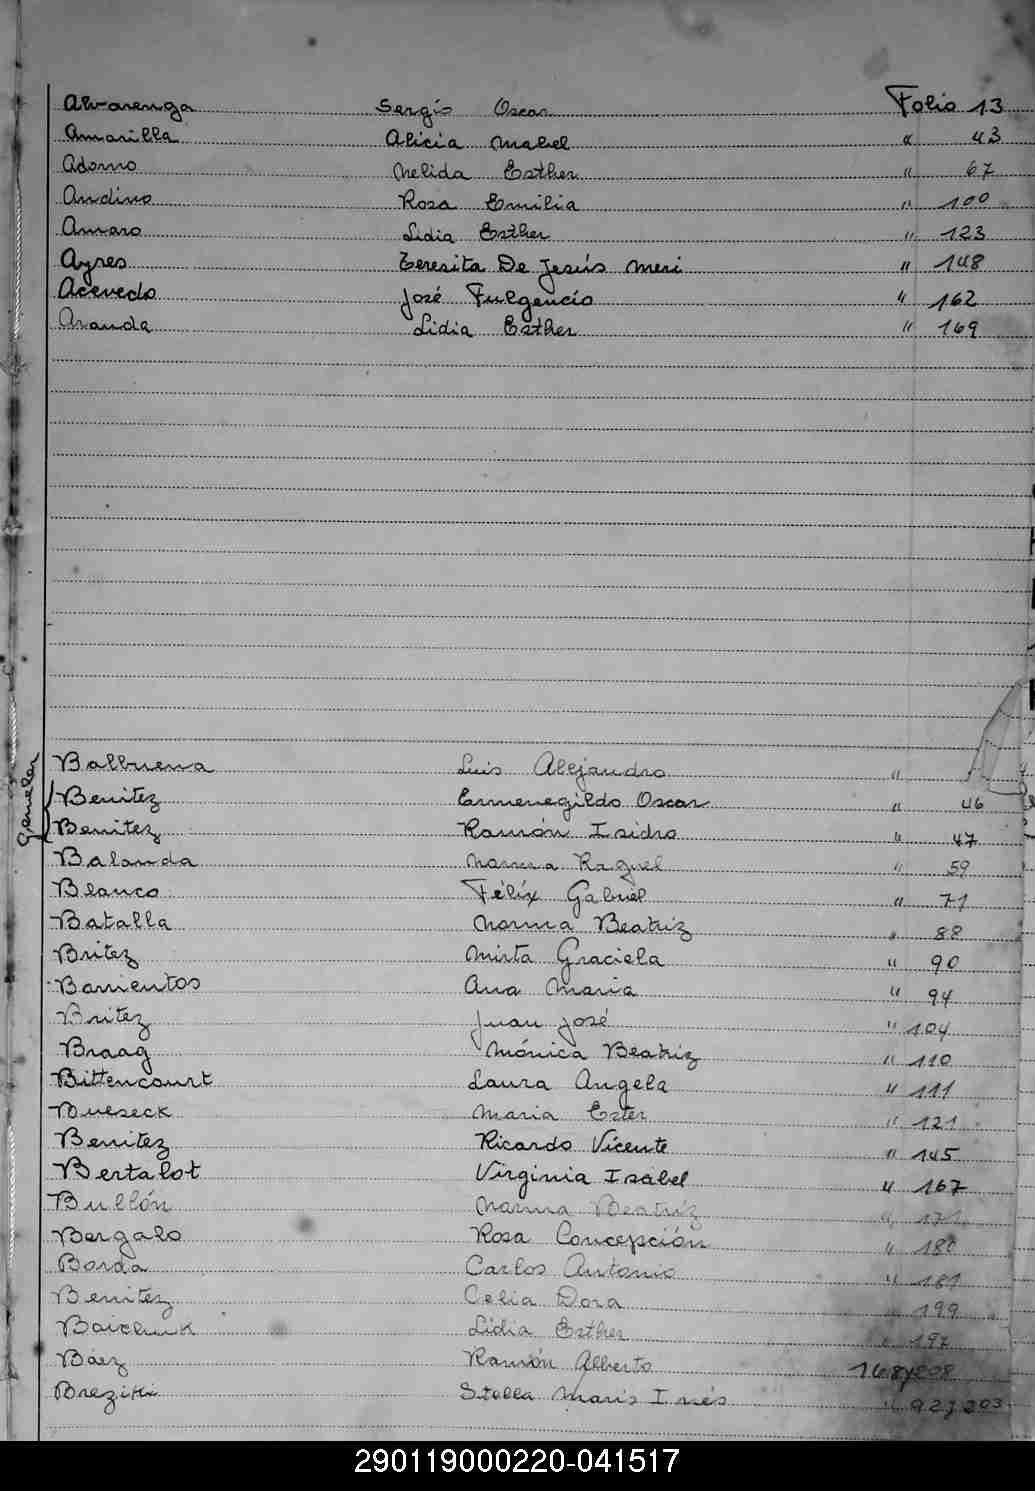 Alvarenga Sergio Oscar Folio 13
Amarilla Alicia Mabel " 43
Adorno Nelida Esther " 67
Andino Rosa Emilia " 100
Amaro Lidia Esther " 123
Ayres Teresita De Jesús Meri " 148
Acevedo José Fulgencio " 162
Aranda Lidia Esther " 169
Balbuena Luis Alejandro "
Benitez Ermenegildo Oscar " 46
Benitez Ramón Isidro " 47
Balanda Norma Raquel " 59
Blanco Félix Gabriel " 71
Batalla Norma Beatriz " 88
Britez Mirta Graciela " 90
Barrientos Ana Maria " 94
Britez Juan José " 104
Braag Mónica Beatriz " 110
Bittencourt Laura Angela " 111
Bueseck Maria Ester " 121
Benitez Ricardo Vicente " 145
Bertalot Virginia Isabel " 167
Bullón Norma Beatriz " 171
Bergalo Rosa Concepción " 180
Borda Carlos Antonio " 181
Benitez Celia Dora 199
Lidia Esther " 197
Báez Ramón Alberto
Stella Maris Inés
290119000220-041517